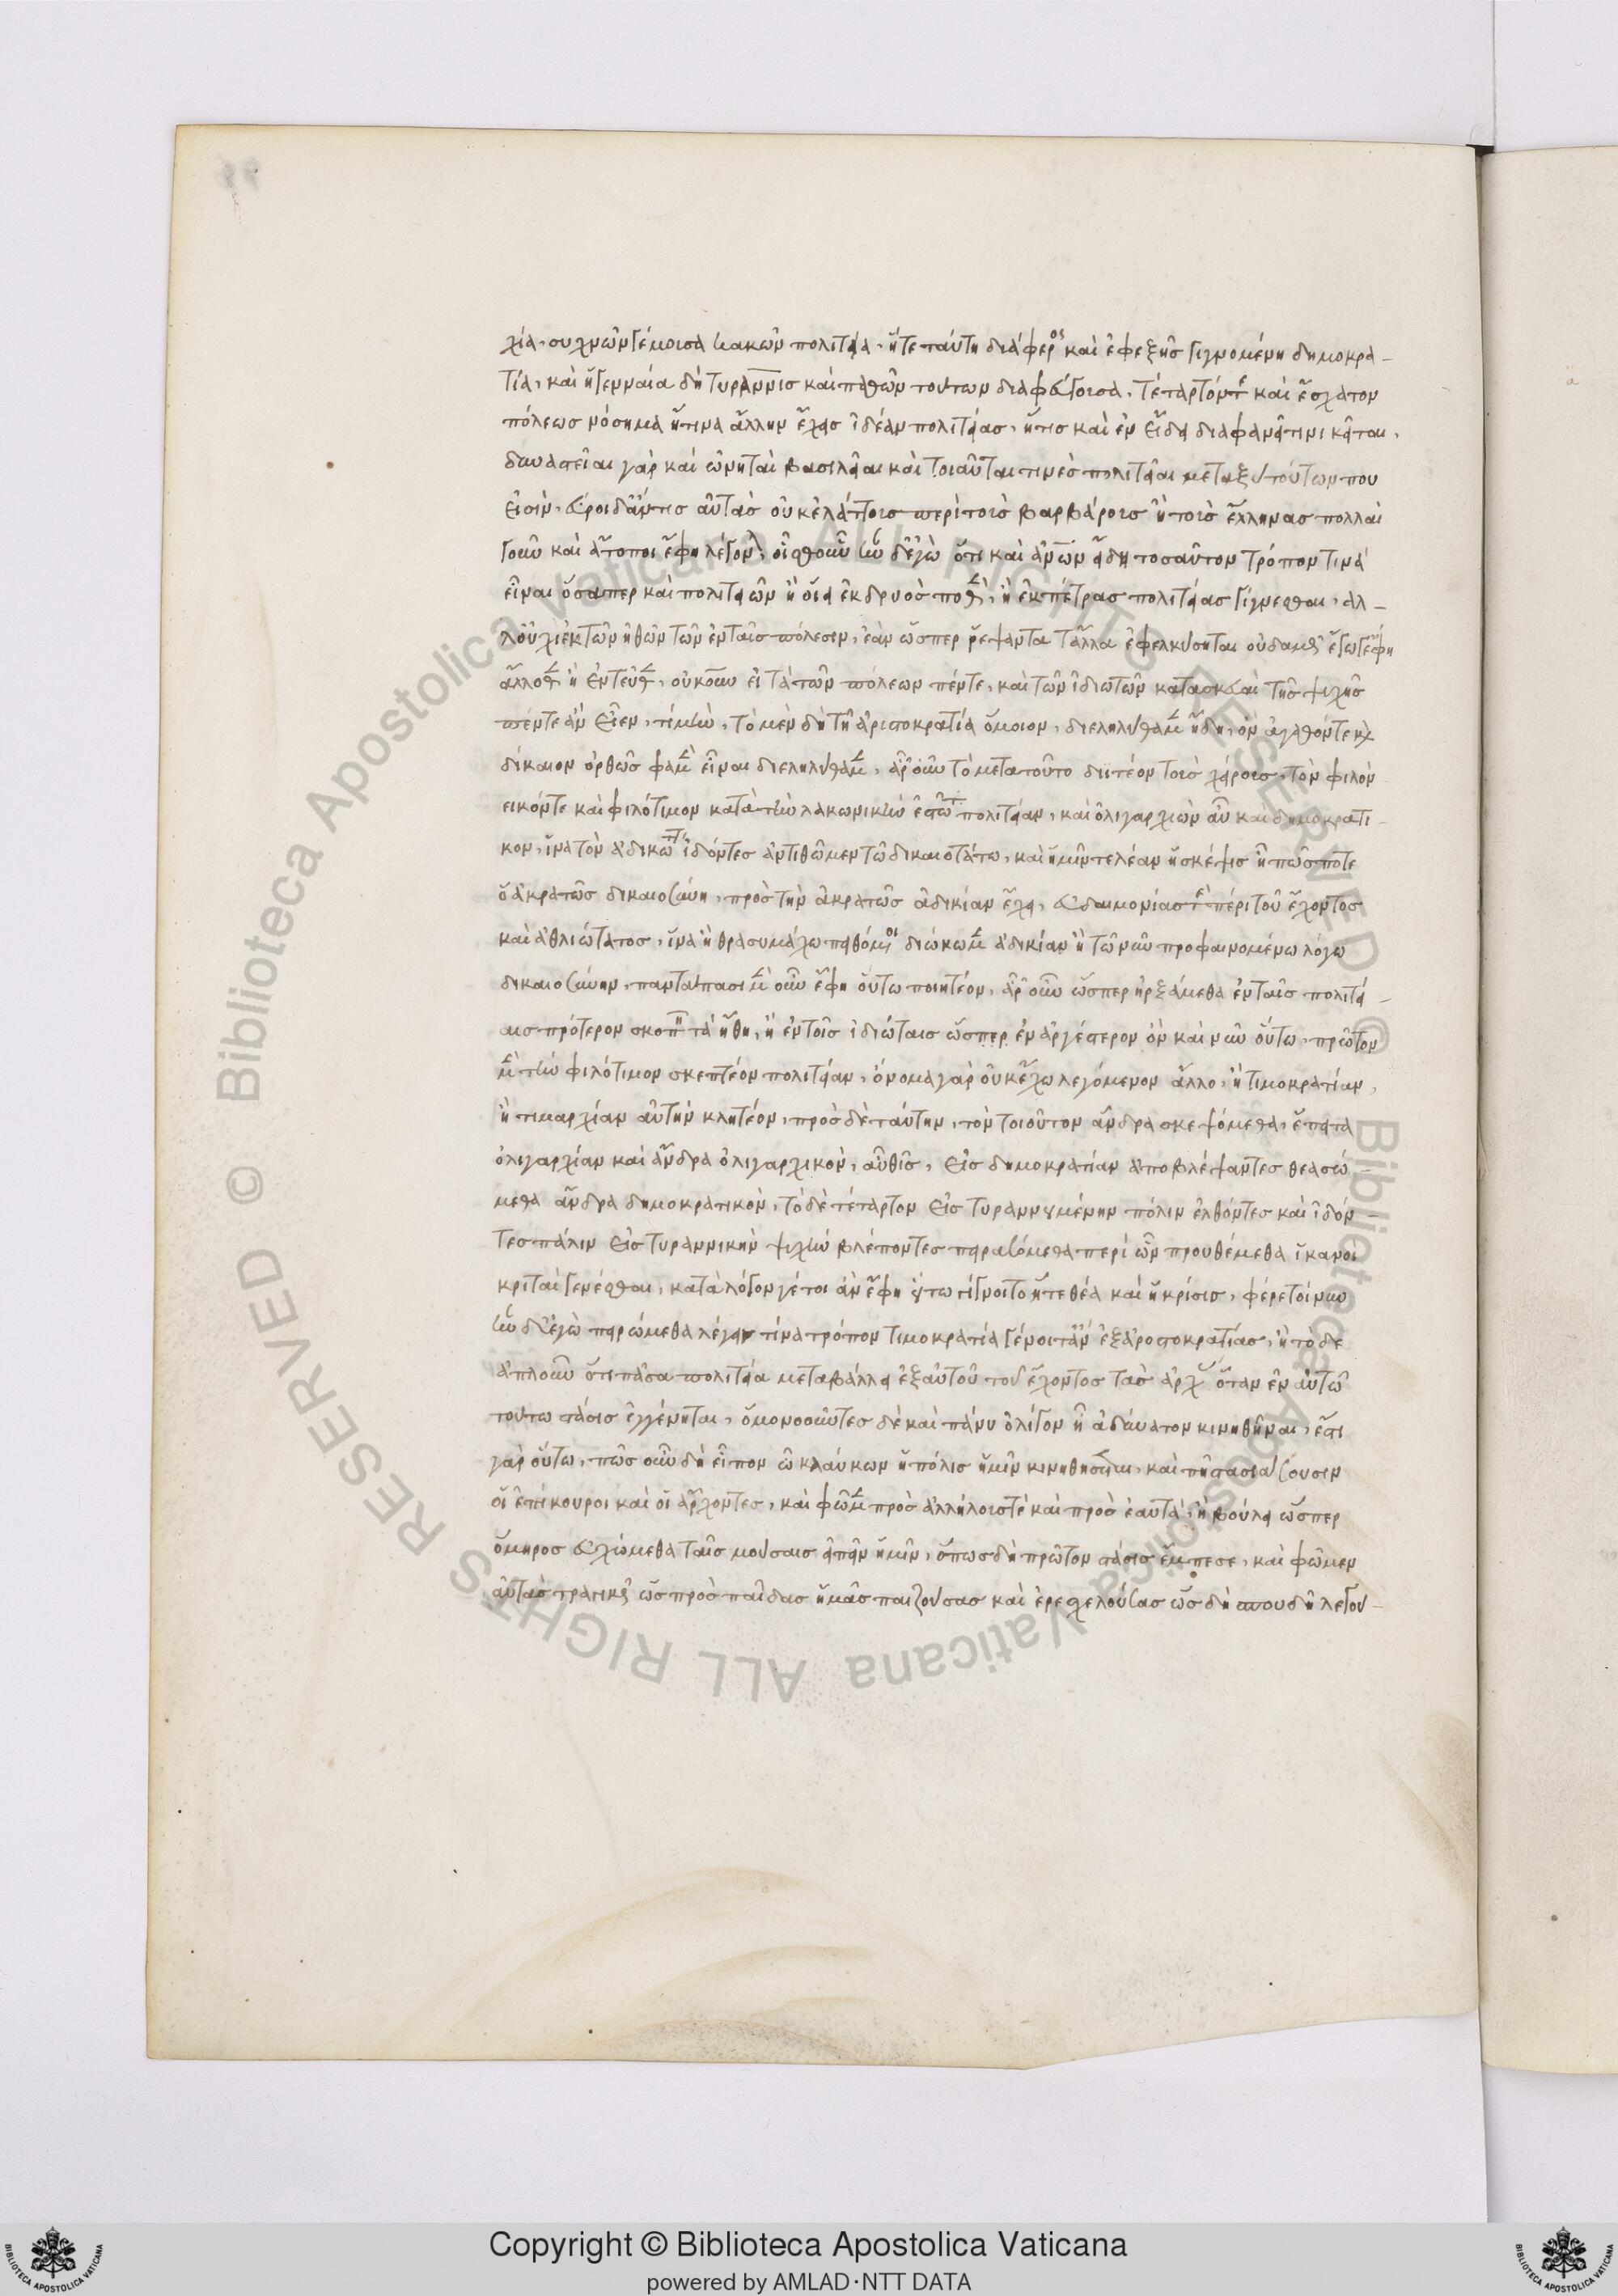 χία, συχνῶν γέμουσα κακῶν πολιτεία, ἥτε ταύτη διάφορος καὶ ἐφεξῆς γιγνομένη δημοκρα-
τία, καὶ ἡ γενναία δὴ τυραννὶς καὶ πασῶν τούτων διαφεύγουσα, τέταρτόν τε καὶ ἔσχατον
πόλεως νόσημα ἤ τινα ἄλλην ἔχεις ἰδέαν πολιτείας, ἥτις καὶ ἐν εἴδει διαφανεῖ τινι κεῖται,
δυναστεῖαι γὰρ καὶ ὠνηταὶ βασιλεῖαι καὶ τοιαῦταί τινες πολιτεῖαι μεταξὺ τούτων που
εἰσὶν, εὕροι δ᾽ ἄν τις αὐτὰς οὐκ ἐλάττους περὶ τοὺς βαρβάρους ἢ τοὺς ἕλληνας πολλαὶ
γοῦν καὶ ἄτοποι ἔφη λέγονται, οἶσθ᾽ οὖν ἦν δ᾽ ἐγὼ ὅτι καὶ ἀνων εἴδη τοσαῦτον τρόπον τινὰ
εἶναι ὅσαπερ καὶ πολιτειῶν ἢ οἴει ἐκ δρυὸς ποθὲν, ἢ ἐκ πέτρας πολιτείας γίγνεσθαι, ἀλ-
λ᾽ οὐχὶ ἐκ τῶν ἠθῶν τῶν ἐν ταῖς πόλεσιν, ἐὰν ὥσπερ ῥέψαντα τἆλλα ἐφελκύσηται οὐδαμῶς ἔγωγ᾽ ἔφη
ἄλλοθεν ἢ ἐντεῦθεν, οὐκοῦν εἰ τὰ τῶν πόλεων πέντε, καὶ τῶν ἰδιωτῶν κατασκευαὶ τῆς ψυχῆς
πέντε ἂν εἶεν, τί μὴν, τὸ μὲν δὴ τῇ ἀριστοκρατία ὅμοιον, διεληλύθαμεν ἤδη, ὃν ἀγαθόν τε καὶ
δίκαιον ὀρθῶς φαμὲν εἶναι διεληλύθαμεν, ἆρ᾽ οὖν τὸ μετατοῦτο διϊτέον τοὺς χείρους, τὸν φιλόν
εικόν τε καὶ φιλότιμον κατὰ τὴν λακωνικὴν ἑστῶτα πολιτείαν, καὶ ὀλιγαρχικὸν αὖ καὶ δημοκρατι
κον, ἵνα τὸν ἀδικώτατον ἰδόντες ἀντιθῶμεν τῶ δικαιοτάτω, καὶ ἡμῖν τελέαν ἡ σκέψις ἢ πῶς ποτε
ὁ ἀκρατῶς δικαιοσύνη, πρὸς τὴν ἀκρατῶς ἀδικίαν ἔχει, εὐδαιμονίας τὲ πέρι τοῦ ἔχοντος
καὶ ἀθλιώτατος, ἵνα ἢ θρασυμάχω πειθόμενοι διώκωμεν ἀδικίαν ἢ τῶ νῦν προφαινομένω λόγω
δικαιοσύνην, πανταπασι μὲν οὖν ἔφη οὕτω ποιητέον, ἆρ᾽ οὖν ὥσπερ ἠρξάμεθα ἐν ταῖς πολιτεί-
αις πρότερον σκοπεῖν τὰ ἤθη, ἢ ἐν τοῖς ἰδιώταις ὥσπερ ἐναργέστερον ὂν καὶ νῦν οὕτω, πρῶτον
μὲν τὴν φιλότιμον σκεπτέον πολιτείαν, ὄνομα γὰρ οὐκ ἔχω λεγόμενον ἄλλο, ἢ τιμοκρατίαν,
ἢ τιμαρχίαν αὐτὴν κλητέον, πρὸς δὲ ταύτην, τὸν τοιοῦτον ἄνδρα σκεψόμεθα, ἔπειτα
ὀλιγαρχίαν καὶ ἄνδρα ὀλιγαρχικὸν, αὖθις, εἰς δημοκρατίαν ἀποβλέψαντες θεασώ
μεθα ἄνδρα δημοκρατικὸν, τὸ δὲ τέταρτον εἰς τυραννουμένην πόλιν ἐλθόντες καὶ ἰδόν-
τες πάλιν εἰς τυραννικὴν ψυχὴν βλέποντες πειρασόμεθα περὶ ὧν προυθέμεθα ἱκανοὶ
κριταὶ γενέσθαι, κατὰ λόγον γέτοι ἂν ἔφη οὕτω γίγνοιτο ἥτε θέα καὶ ἡ κρίσις, φέρε τοίνυν
ἦν δ᾽ ἐγὼ πειρώμεθα λέγειν τίνα τρόπον τιμοκρατία γένοιτ᾽ ἂν ἐξ ἀριστοκρατίας, ἢ τὸ δε
ἁπλοῦν ὅτι πᾶσα πολιτεία μεταβάλλει ἐξ αὐτοῦ τοῦ ἔχοντος τὰς ἀρχὰς ὅταν ἐν αὐτῶ
τούτω στάσις ἐγγένηται, ὁμονοοῦντες δὲ καὶ πάνυ ὀλίγον ἢ ἀδύνατον κινηθῆναι, ἔστι
γὰρ οὕτω, πῶς οὖν δὴ εἶπον ὦ κλαύκων ἡ πόλις ἡμῖν κινηθήσεται, καὶ πῆ στασιάσουσιν
οἱ ἐπίκουροι καὶ οἱ ἄρχοντες, καὶ φῶμεν πρὸς ἀλλήλους τὲ καὶ πρὸς ἑαυτά, ἢ βούλει ὥσπερ
ὅμηρος εὐχώμεθα ταῖς μούσαις εἰπεῖν ἡμῖν, ὅπως δὴ πρῶτον στάσις ἔμπεσε, καὶ φῶμεν
αὐτὰς τραγικῶς ὡς πρὸς παῖδας ἡμᾶς παιζούσας καὶ ἐρεσχελούσας ὡς δὴ σπουδῆ λεγού-
Copyright © Biblioteca Apostolica Vaticana
powered by AMLAD·NTT DATA